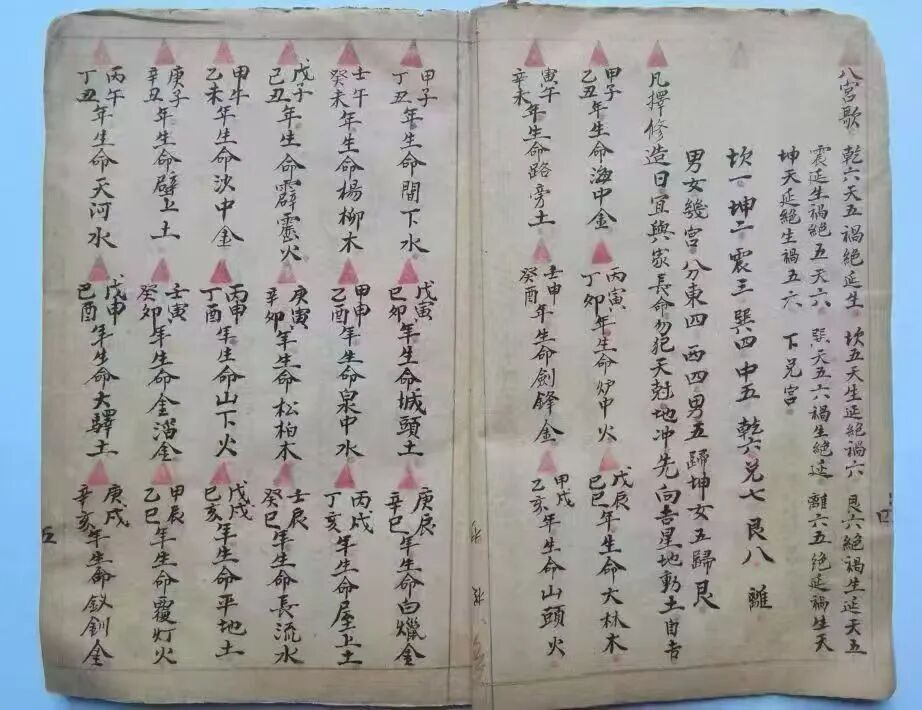 八宮歌 乾六天五禍絕延生 坎五天生延絕禍六 艮六絕禍生延天五
震延生禍絕五天六 巽天五六禍生絕延 離六五絕延禍生天
坤天延絕生禍五六 下兌宮
坎一坤二震三巽四中五乾六兌七艮八離
男女幾宮分東四西四男五歸坤女五歸艮
凡擇修造日宜與家長命勿犯天尅地冲先向吉星地動土自吉
甲子乙丑年生命海中金 丙寅丁卯年生命炉中火 戊辰己巳年生命大林木
寅午辛未年生命路旁土 壬申癸酉年生命劍鋒金 甲戌乙亥年生命山頭火
甲子丁丑年生命間下水 戊寅己卯年生命城頭土 庚辰辛巳年生命白爉金
壬午癸未年生命楊柳木 甲申乙酉年生命泉中水 丙戌丁亥年生命屋上土
戊子己丑年生命霹靂火 庚寅辛卯年生命松柏木 壬辰癸巳年生命長流水
甲午乙未年生命沙中金 丙申丁酉年生命山下火 戊戌己亥年生命平地土
庚子辛丑年生命辟上土 壬寅癸卯年生命金溜金 甲辰乙巳年生命覆灯火
丙午丁丑年生命天河水 戊申己酉年生命大驛土 庚戌辛亥年生命釵釧金